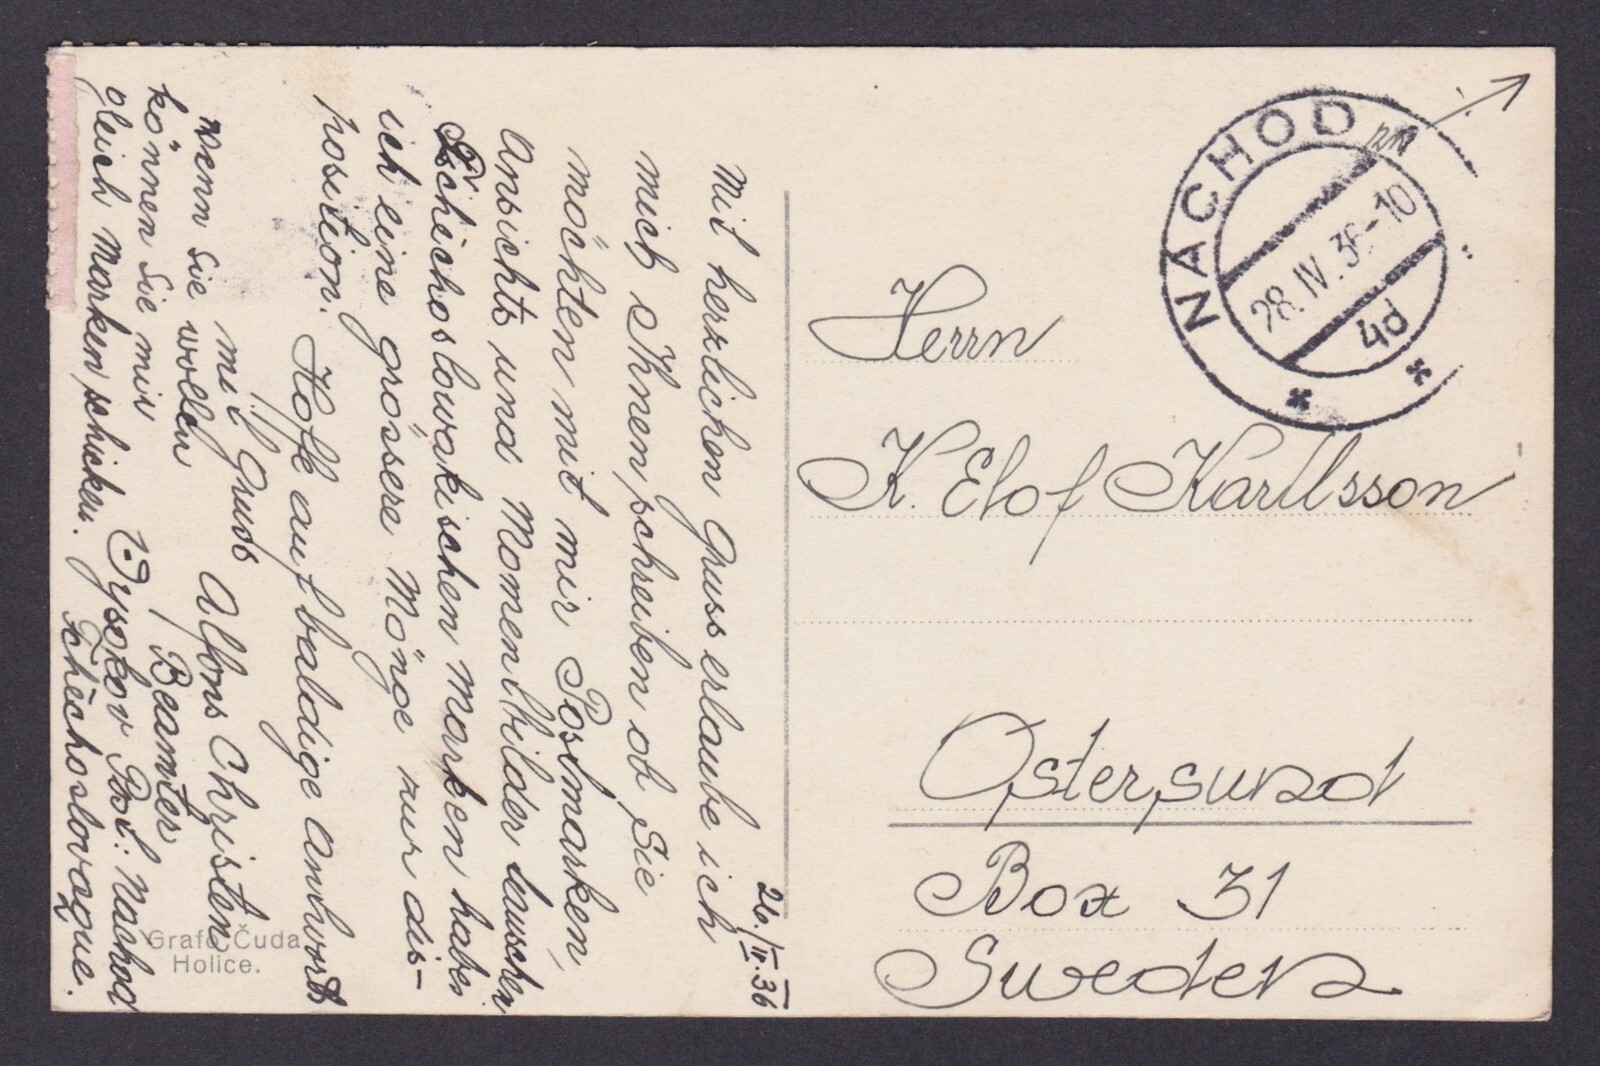 26./IV.36
Mit herzlichen Gruss erlaube ich
mich Ihnen schreiben ob Sie
möchten mit mir Postmarken,
Ansichts und Momentbilder tauschen
Tschechoslowakischen Marken habe
ich eine grössere Mönge zur dis-
position.
Hofe auf baldige anwort
mit Gruss
Alfons Christen
Beamter
Vysokov Post: Nachod
Tchéchoslovaque.
Wenn Sie wollen
können Sie mir
gleich Marken schicken.
Grafo Čuda
Holice.
NÁCHOD
28. IV. 36-10
4d
Herrn
K. Elof Karllsson
Ostersund
Box 31
Sweden